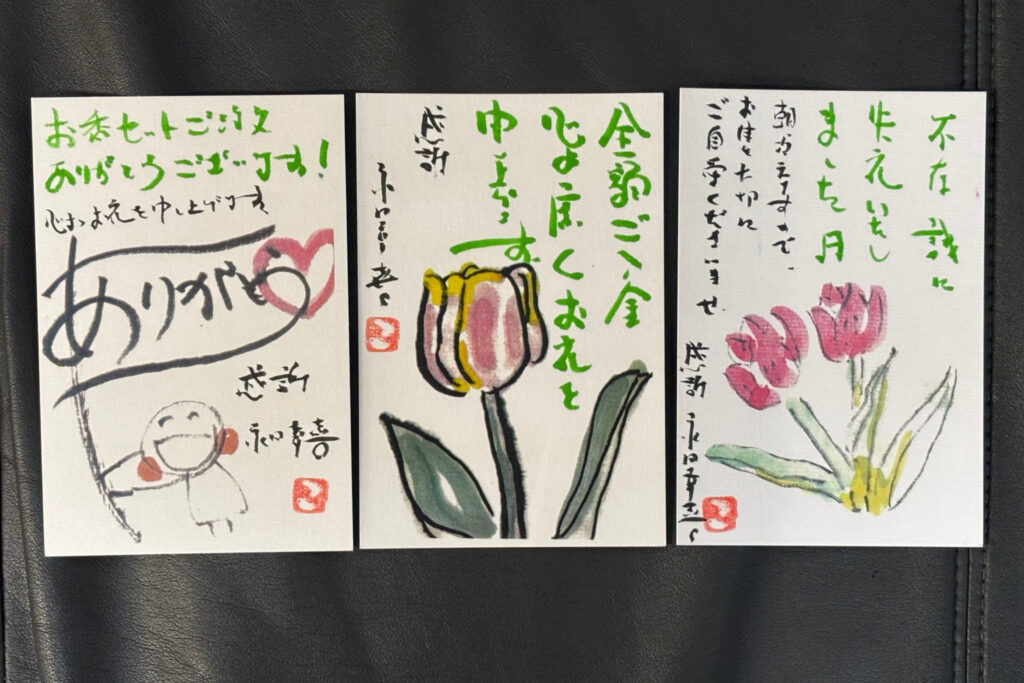 お香セットご注文
ありがとうございます!
心よりお礼を申し上げます
ありがとう
感謝
全額ご入金
心より深くお礼を
申し上げます
感謝
不在 誠に
失礼いたし
ました
お体を大切に
ご自愛くださいませ
感謝